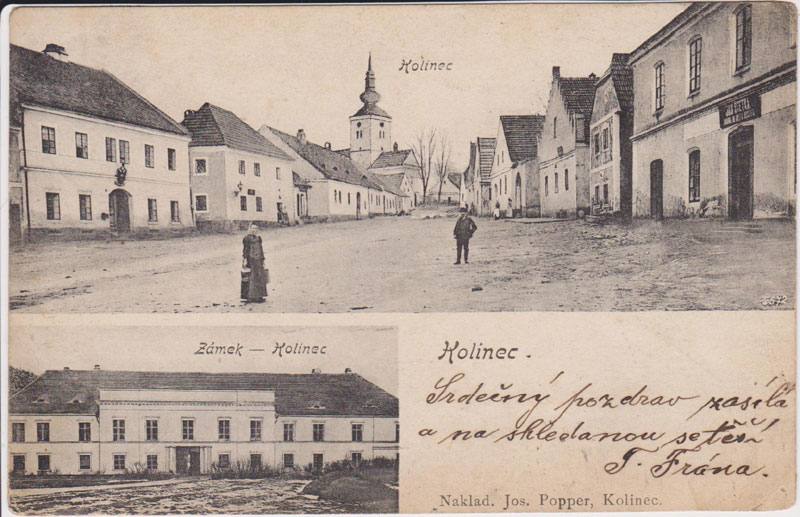 Kolinec
JAN ČIETKA
5372
Zámek — Kolinec
Kolinec.
Srdečný pozdrav zasílá
a na shledanou se těší
T. Frána.
Naklad. Jos. Popper, Kolinec.